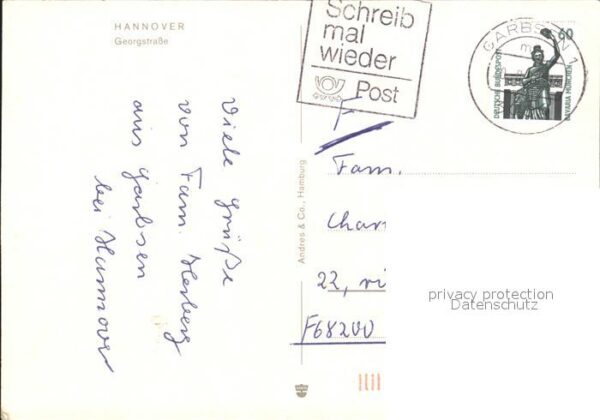 HANNOVER
Georgstraße
Viele Grüße
von Fam. Herberg
aus Garbsen
bei Hannover
Andres & Co., Hamburg
Schreib
mal
wieder
Post
GARBSEN 1
60
DEUTSCHE BUNDESPOST
BAVARIA MÜNCHEN
F
Fam.
Char
22,
F68200
privacy protection
Datenschutz